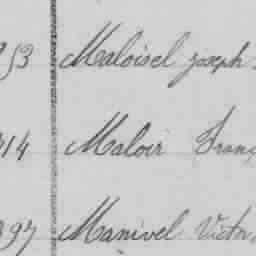 953 Maloisel joseph
214 Maloir Franç
397 Manivel Victor